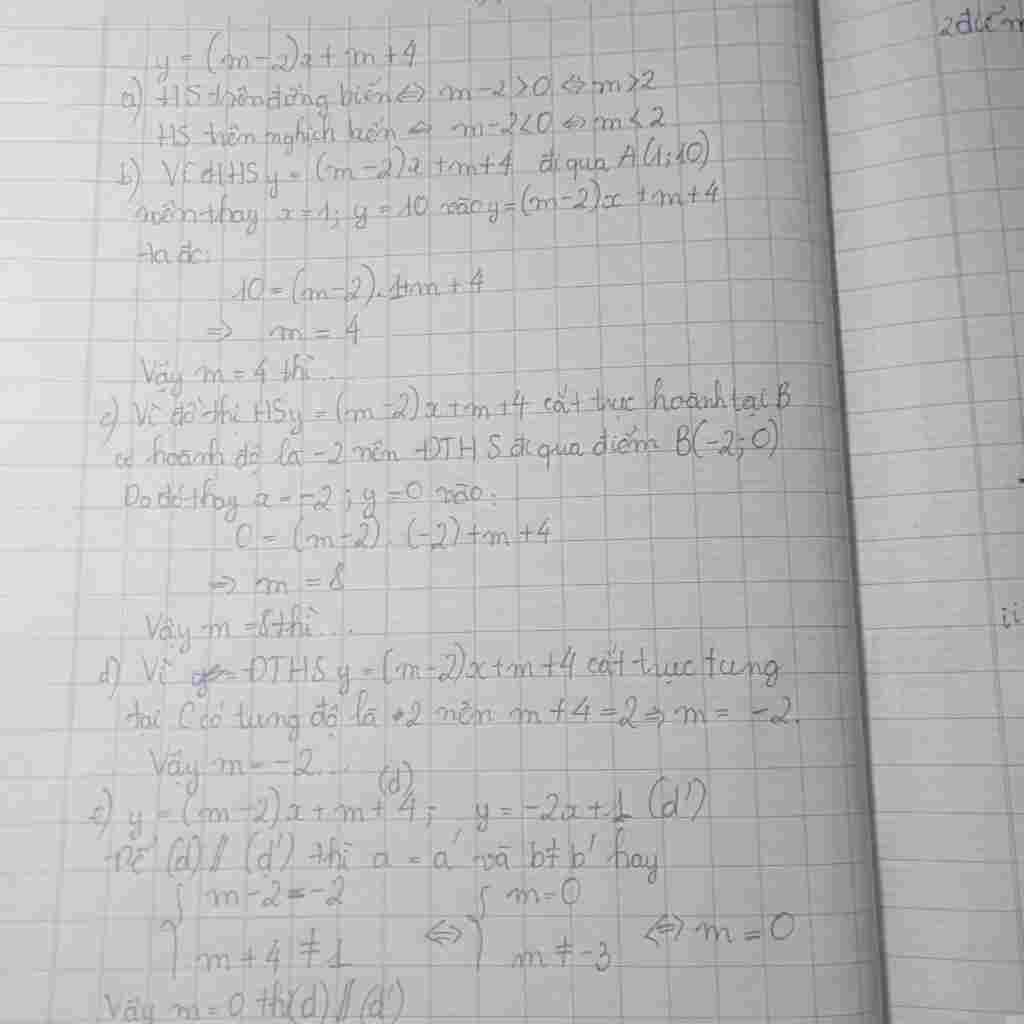 y = (m-2)x + m + 4
a) HS trên đồng biến ⇔ m-2 > 0 ⇔ m > 2
HS trên nghịch biến ⇔ m-2 < 0 ⇔ m < 2
b) Vì ĐTHS y = (m-2)x + m + 4 đi qua A(1; 10)
nên thay x = 1; y = 10 vào y = (m-2)x + m + 4
ta đc:
10 = (m-2).1+m + 4
⇒ m = 4
Vậy m = 4 thì ...
c) Vì đồ thị HS y = (m-2)x + m + 4 cắt trục hoành tại B
có hoành độ là -2 nên ĐTHS đi qua điểm B(-2; 0)
Do đó thay x = -2; y = 0 vào:
0 = (m-2).(-2) + m + 4
⇒ m = 8
Vậy m = 8 thì ...
d) Vì ĐTHS y = (m-2)x + m + 4 cắt trục tung
tại C có tung độ là 2 nên m + 4 = 2 ⇒ m = -2.
Vậy m = -2 ...
e) y = (m-2)x + m + 4 (d); y = -2x + 1 (d')
Để (d) // (d') thì a = a' và b ≠ b' hay
{ m-2 = -2 { m = 0
{ m + 4 ≠ 1 ⇔ { m ≠ -3 ⇔ m = 0
Vậy m = 0 thì (d) // (d')
2 điểm
ii